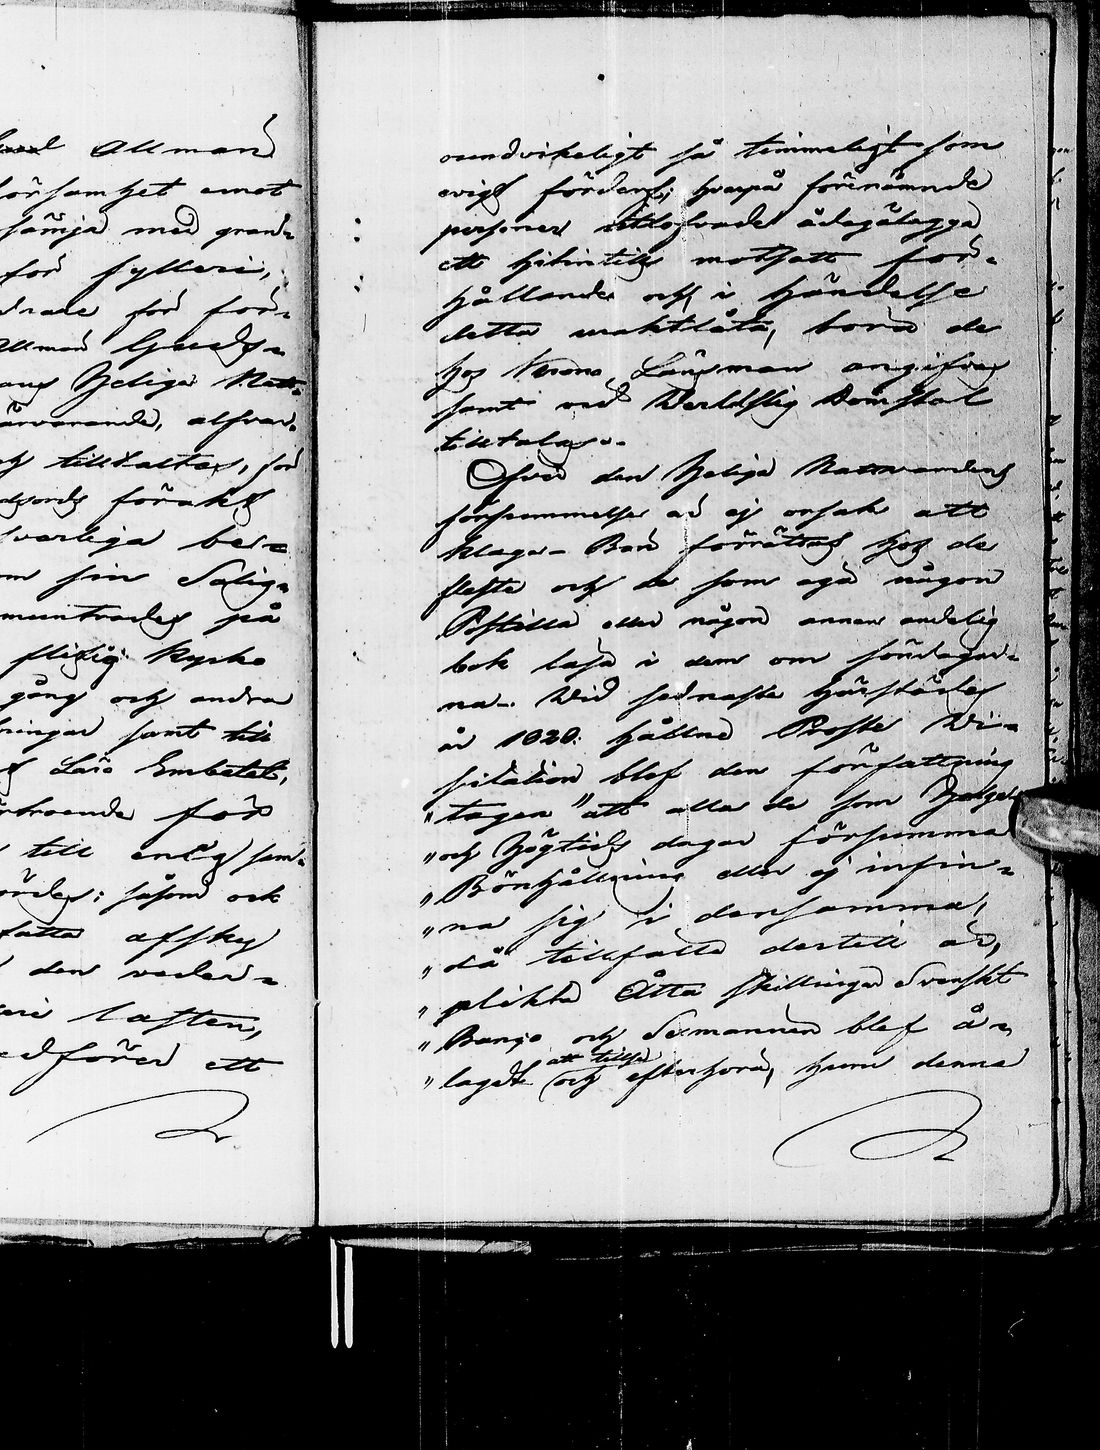 Allman
hörsamhet emot
sämja med gran-
för fylleri,
drade för för-
Allmän Guds-
Helige Natt-
ärvarande, alfvar-
tilltaltas, för
ords förakt
svarliga be-
om sin Salig-
muntrades på
flitig kyrko
gång och andra
ningar samt till
Läro Embetet,
förtroende för
till enlig sam-
såsom ock
fatta afsky
den veder-
laster,
edförer ett
oundvikeligt så timmeligt som
evigt förderf; hvarpå förenämnde
personer utlofvade ådagalägga
ett hitintills motsatt för-
hållande och i händelse
detta uraktlåta, borde de
hos Krono Länsman angifvas
samt vid Verldslig Domstol
tilltalas.
Öfver den Helige Nattvardens
försummelse är ej orsak att
klaga - Bön förrättas hos de
fleste och de som äga någon
Postilla eller någon annan andelig
bok läsa i dem om söndagar-
na. Vid sednaste härstädes
år 1820 hållne Proste Vi-
sitation blef den författning
"tagen "att alla de som Helge
"och Högtids dagar försumma
"Bönhållning eller ej infin-
"na sig i densamma,
"då tillfälle dertill är,
"plikta Åtta skillingar Svenskt
"Banco och Sexmännen blef å-
"lagdt att tillse
"och efterhöra, huru denna